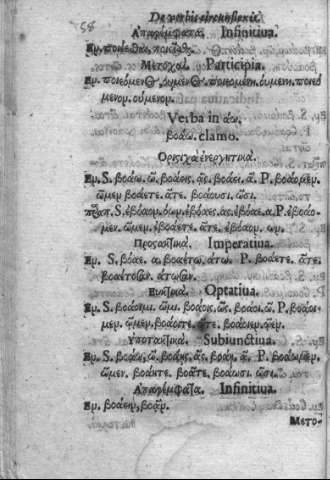 58 De verbis circunflexis.
Ἀπαρέμφατα. Infinitiua.
Εμ. ποιέεσθαι, ποιεῖσθαι.
Μετοχαί. Participia.
Εμ. ποιεόμενος, ούμενος. ποιεομένη. ουμένη. ποιεό
μενον. ούμενον.
Verba in άω.
βοάω. clamo.
Ὁριστικὰ ἐνεργητικά.
Εμ. S. βοάω. ῶ. βοάεις. ᾷς. βοάει. ᾷ. P. βοάομεν.
ῶμεν βοάετε. ᾶτε. βοάουσι. ῶσι.
S. ἐβόαον. ων. ἐβόαες. ας. ἐβόαε. α. P. ἐβοάο-
μεν. ῶμεν. ἐβοάετε. ᾶτε. ἐβόαον. ων.
Προστακτικά. Imperatiua.
Εμ. S. βόαε. α. βοαέτω. άτω. P. βοάετε. ᾶτε.
βοαέτωσαν. άτωσαν.
Ευκτικά. Optatiua.
Εμ. S. βοάοιμι. ῷμι. βοάοις. ῷς. βοάοι. ῷ. P. βοάοι-
μεν. ῷμεν. βοάοιτε. ῷτε. βοάοιεν. ῷεν.
Υποτακτικά. Subiunctiua.
Εμ. S. βοάω. ῶ. βοάῃς. ᾷς. βοάῃ. ᾷ. P. βοάωμεν.
ῶμεν. βοάητε. βοᾶτε. βοάωσι. ῶσι.
Ἀπαρέμφατα. Infinitiua.
Εμ. βοάειν, βοᾷν.
Μετο-